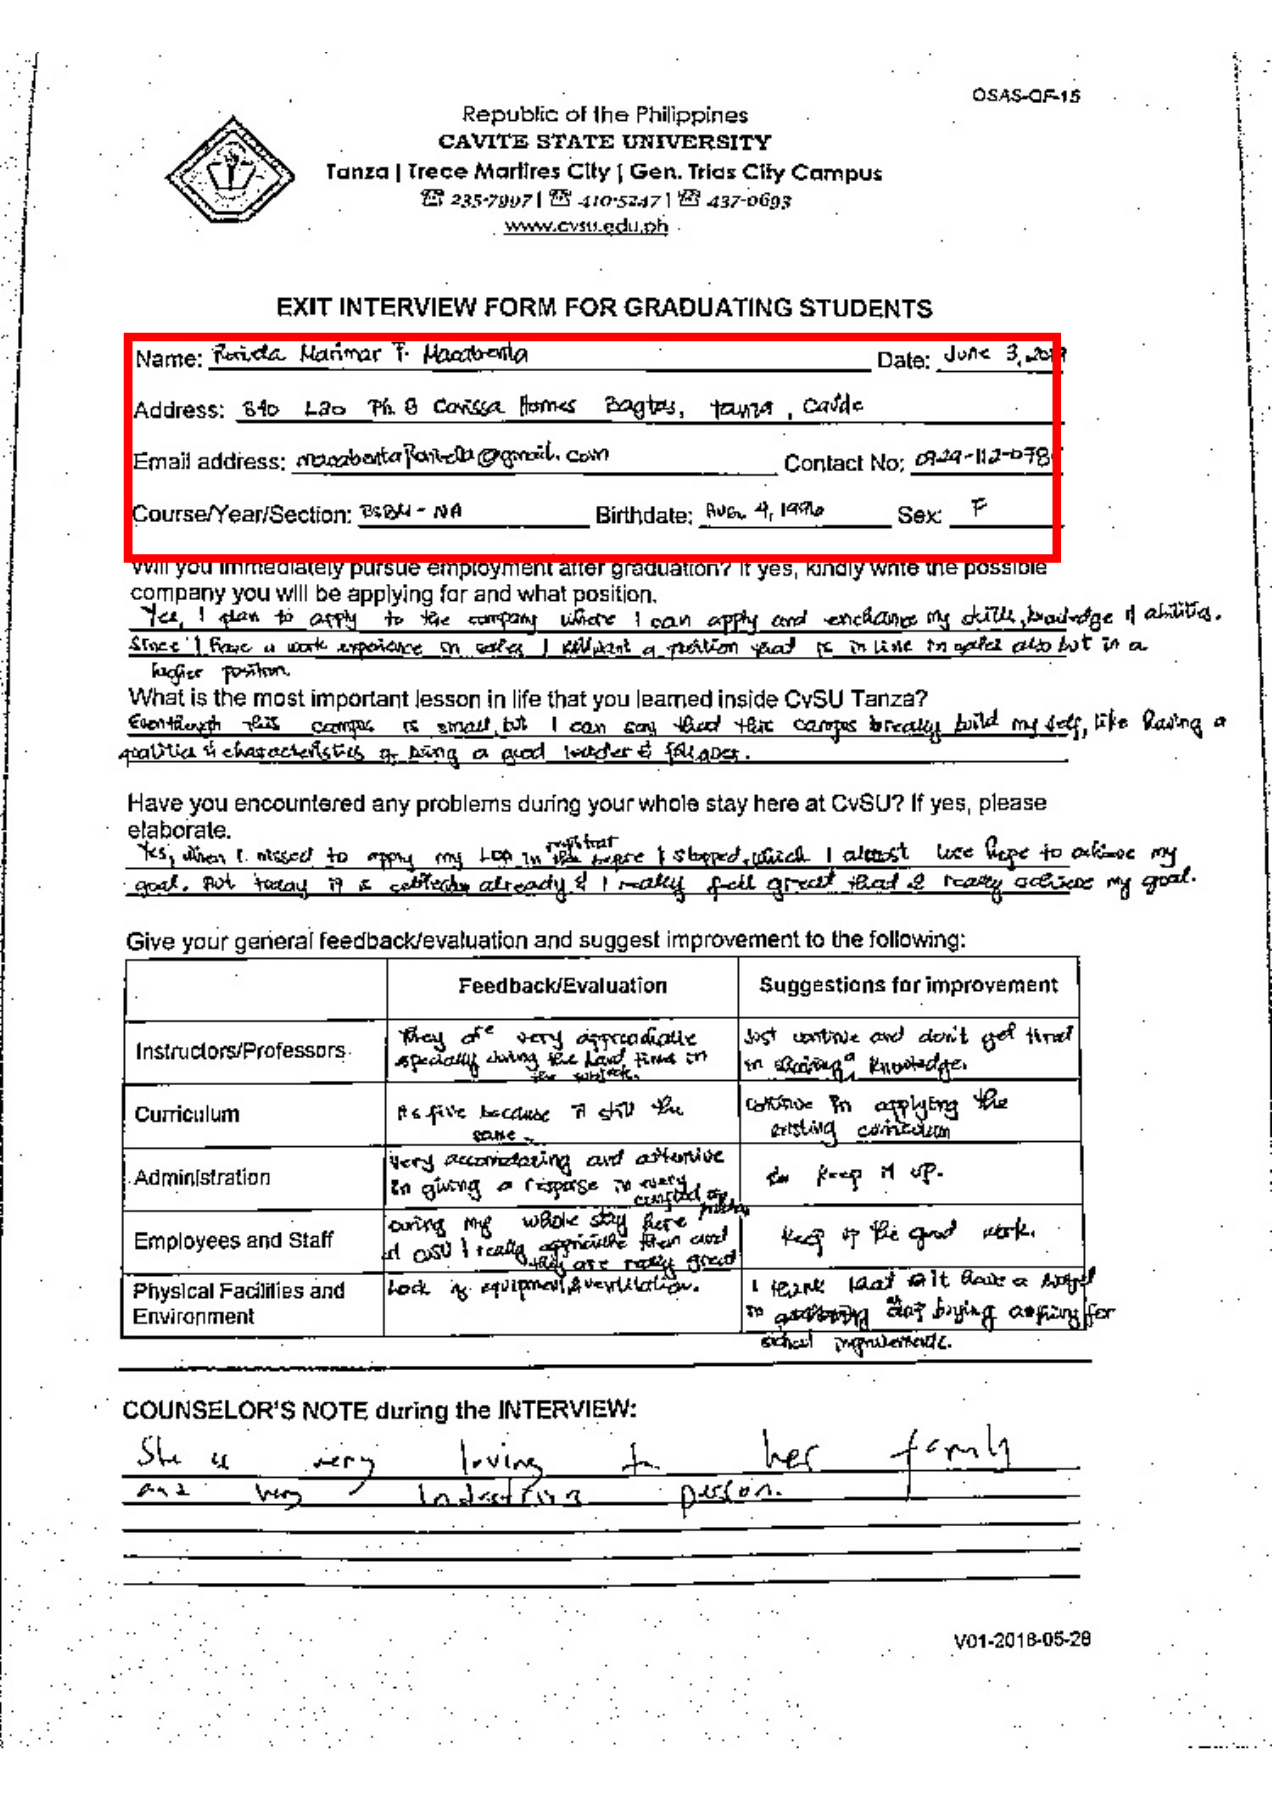 OSAS-QF-15
Republic of the Philippines
CAVITE STATE UNIVERSITY
Tanza | Trece Martires City | Gen. Trias City Campus
☎ 235-7997 | ☎ 410-5247 | ☎ 437-0693
www.cvsu.edu.ph
EXIT INTERVIEW FORM FOR GRADUATING STUDENTS
Name: Marimar F. Macabenta Date: June 3, 2019
Address: Ph. 8 Carissa Homes Bagtas, Tanza, Cavite
Email address: Contact No: 0929-112-078
Course/Year/Section: Birthdate: Aug. 4, Sex: F
Will you immediately pursue employment after graduation? If yes, kindly write the possible
company you will be applying for and what position.
Yes, I plan to apply to the company where I can apply and enchance my skills, knowledge & abilities.
Since I have a work experience in sales I a position that is in line in sales also but in a
higher position.
What is the most important lesson in life that you learned inside CvSU Tanza?
Eventhough this campus is small, but I can say that this campus build my self, like having a
qualities & characteristics of being a good leader & follower.
Have you encountered any problems during your whole stay here at CvSU? If yes, please
elaborate.
Yes, when I missed to apply my LOA in registrar before I stopped, which I almost lose hope to achieve my
goal. But today it is already & I really feel great that I really achieve my goal.
Give your general feedback/evaluation and suggest improvement to the following:
Feedback/Evaluation Suggestions for improvement
Instructors/Professors They are very especially during the hard times in the subject. Just continue and don't get tired in sharing a knowledge.
Curriculum because it still the same. Continue in applying the existing curriculum
Administration Very and attentive in giving a response in every keep it up.
Employees and Staff During my whole stay here at CvSU I really them and they are really great Keep up the good work.
Physical Facilities and Environment Lack of equipment & ventilation. I think that have a budget in buying for school improvements.
COUNSELOR'S NOTE during the INTERVIEW:
She is very loving to her family
and very person.
V01-2018-05-28